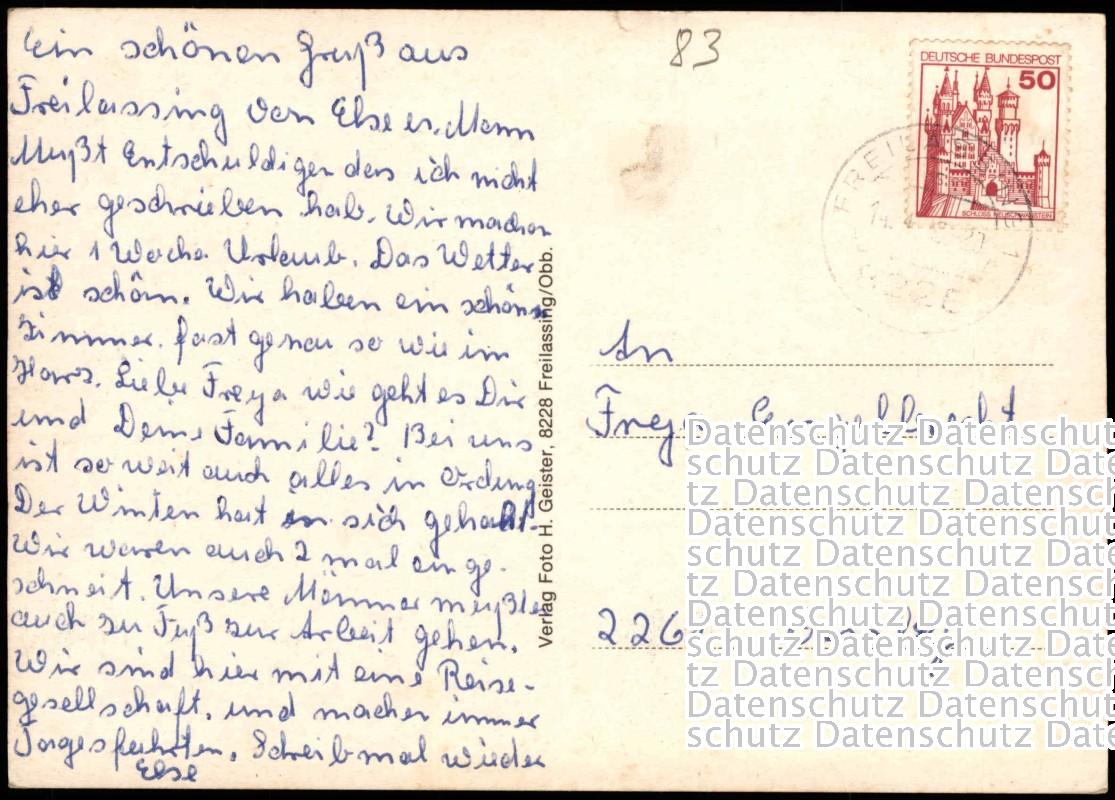 Ein schönen Gruß aus
Freilassing von Else u. Mann
Mußt Entschuldigen das ich nicht
eher geschrieben hab. Wir machen
hier 1 Woche Urlaub. Das Wetter
ist schön. Wir haben ein schönes
Zimmer. fast genau so wie im
Harz. Liebe Freya wie geht es Dir
und Deine Familie? Bei uns
ist so weit auch alles in Ordung
Der Winter hat es in sich gehabt.
Wir waren auch 2 mal einge-
schneit. Unsere Männer mußte
auch zu Fuß zur Arbeit gehen.
Wir sind hier mit eine Reise-
gesellschaft. und machen immer
Tagesfahrten. Schreib mal wieder
Else
Verlag Foto H. Geister, 8228 Freilassing/Obb.
83
DEUTSCHE BUNDESPOST
50
SCHLOSS NEUSCHWANSTEIN
An
Freya
Datenschutz Datenschut
schutz Datenschutz Da
tz Datenschutz Datensc
Datenschutz Datenschut
schutz Datenschutz Da
tz Datenschutz Datensc
Datenschutz Datenschut
schutz Datenschutz Da
tz Datenschutz Datensc
Datenschutz Datenschut
schutz Datenschutz Da